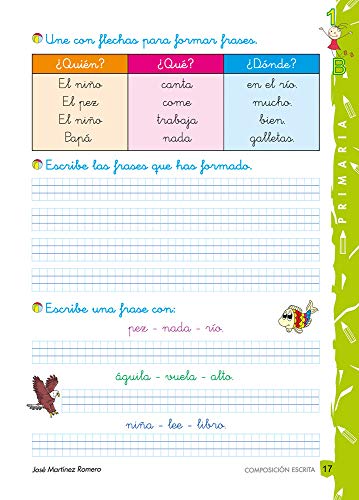 1
B
PRIMARIA
Une con flechas para formar frases.
¿Quién? ¿Qué? ¿Dónde?
El niño canta en el río.
El pez come mucho.
El niño trabaja bien.
Papá nada galletas.
Escribe las frases que has formado.
Escribe una frase con:
pez - nada - río.
águila - vuela - alto.
niña - lee - libro.
José Martínez Romero COMPOSICIÓN ESCRITA 17